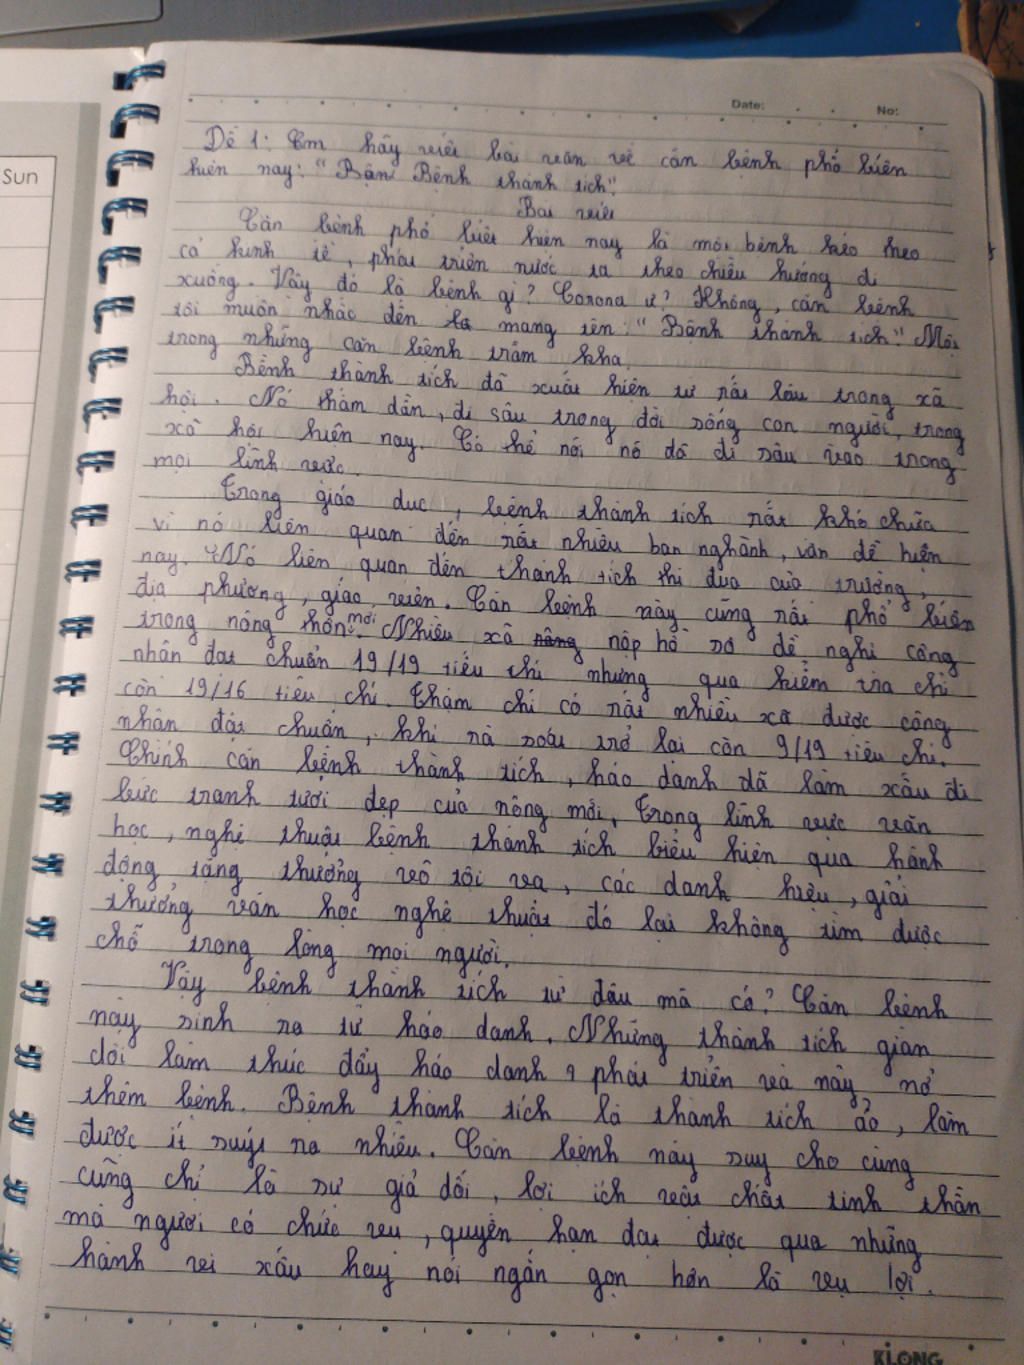 Sun
Date: No:
Đề 1: Em hãy viết bài văn về căn bệnh phổ biến
hiện nay: "Bệnh thành tích".
Bài viết
Căn bệnh phổ biến hiện nay là một bệnh kéo theo
cả kinh tế, phát triển nước ta theo chiều hướng đi
xuống. Vậy đó là bệnh gì? Corona ư? Không, căn bệnh
tôi muốn nhắc đến mang tên: "Bệnh thành tích". Một
trong những căn bệnh trầm kha
Bệnh thành tích đã xuất hiện từ rất lâu trong xã
hội. Nó thấm dần, đi sâu trong đời sống con người, trong
xã hội hiện nay. Có thể nói nó đã đi sâu vào trong
mọi lĩnh vực.
Trong giáo dục, bệnh thành tích rất khó chữa
vì nó liên quan đến rất nhiều ban nghành, vấn đề hiện
nay. Nó liên quan đến thành tích thi đua của trường,
địa phương, giáo viên. Căn bệnh này cũng rất phổ biến
trong nông thôn mới. Nhiều xã nộp hồ sơ đề nghị công
nhận đạt chuẩn 19/19 tiêu chí nhưng qua kiểm tra chỉ
còn 19/16 tiêu chí. Thậm chí có rất nhiều xã được công
nhận đạt chuẩn, khi rà soát trở lại còn 9/19 tiêu chí.
Chính căn bệnh thành tích, háo danh đã làm xấu đi
bức tranh tươi đẹp của nông mới. Trong lĩnh vực văn
học, nghệ thuật bệnh thành tích biểu hiện qua hành
động tặng thưởng vô tội vạ, các danh hiệu, giải
thưởng văn học nghệ thuật đó lại không tìm được
chỗ trong lòng mọi người.
Vậy bệnh thành tích từ đâu mà có? Căn bệnh
này sinh ra từ háo danh. Những thành tích gian
dối làm thúc đẩy háo danh phát triển và nảy nở
thêm bệnh. Bệnh thành tích là thành tích ảo, làm
được ít suýt ra nhiều. Căn bệnh này suy cho cùng
cũng chỉ là sự giả dối, lợi ích vật chất tinh thần
mà người có chức vụ, quyền hạn đạt được qua những
hành vi xấu hay nói ngắn gọn hơn là vụ lợi.
KLONG